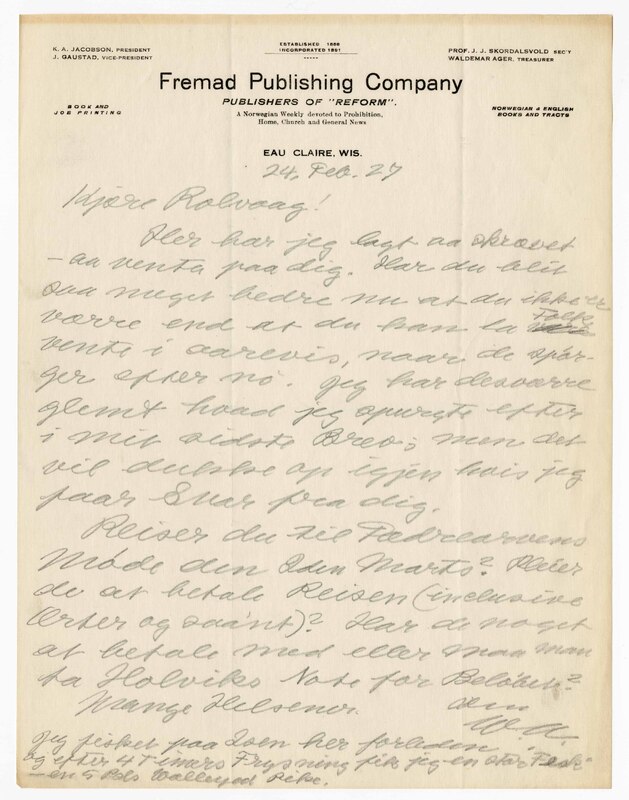 K. A. JACOBSON, PRESIDENT
J. GAUSTAD, VICE-PRESIDENT
ESTABLISHED 1886
INCORPORATED 1891
PROF. J. J. SKORDALSVOLD SEC'Y
WALDEMAR AGER, TREASURER
Fremad Publishing Company
PUBLISHERS OF "REFORM".
BOOK AND
JOB PRINTING
A Norwegian Weekly devoted to Prohibition,
Home, Church and General News
NORWEGIAN & ENGLISH
BOOKS AND TRACTS
EAU CLAIRE, WIS.
24, Feb. 27
Kjære Rolvaag!
Her har jeg lagt aa skrævet
- aa venta paa dig. Har du blit
saa meget bedre nu at du ikke er
værre end at du kan la Folk
vente i aarevis, naar de spør-
ger efter no. Jeg har desværre
glemt hvad jeg spurgte efter
i mit sidste Brev; men det
vil dukke op igjen hvis jeg
faar Svar fra dig.
Reiser du til Fædrearvens
Møde den 2den Marts? Pleier
de at betale Reisen (inclusive
Ærter og saant)? Har de noget
at betale med eller maa man
ta Holviks Note for Beløbet?
Mange Hilsener. din
W. A.
Jeg fisket paa Isen her forleden
og efter 4 Timers Frysning fik jeg en stor Fisk
- en 5 Pds Walleyed Pike.